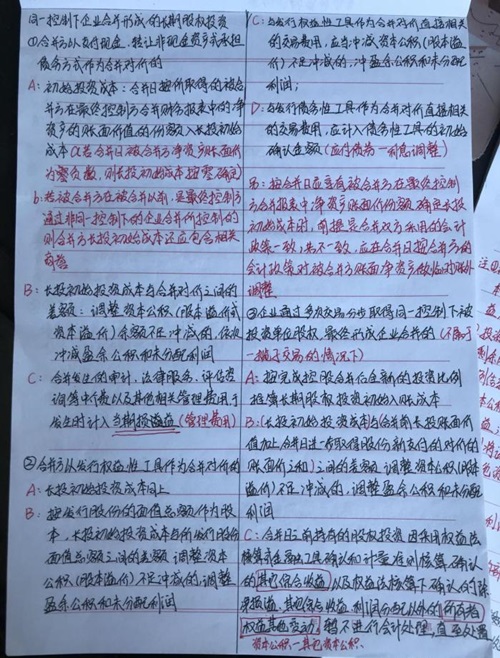 同一控制下企业合并形成的长期股权投资
①合并方以支付现金、转让非现金资产或承担
债务方式作为合并对价的
A：初始投资成本：合并日按取得的被合
并方在最终控制方合并财务报表中的净
资产的账面价值的份额入长投初始
成本（若合并日被合并方净资产账面价
为负数，则长投初始成本按零确定）
b：若被合并方在被合并以前，是最终控制方
通过非同一控制下的企业合并所控制的
则合并方长投初始成本还应包含相关
商誉
B：长投初始投资成本与合并对价之间的
差额：调整资本公积（股本溢价或
资本溢价）余额不足冲减的，依次
冲减盈余公积和未分配利润
C：合并发生的审计、法律服务、评估咨
询等中介费以及其他相关管理费用于
发生时计入当期损益（管理费用）
②合并方以发行权益性工具作为合并对价的
A：长投初始投资成本同上
B：按发行股份的面值总额作为股
本，长投初始投资成本与所发行股份
面值总额之间的差额，调整资本
公积（股本溢价）不足冲减的，调整
盈余公积和未分配利润
C：与发行权益性工具作为合并对价直接相关
的交易费用，应当冲减资本公积（股本溢
价）不足冲减的，冲盈余公积和未分配
利润；
D：与发行债务性工具作为合并对价直接相关
的交易费用，应计入债务性工具的初始
确认金额（应付债券—利息调整）
：按合并日应享有被合并方在最终控制
方合并报表中净资产账面价份额确定长投
初始成本时，前提是合并双方采用的会计
政策一致，若不一致，应在合并日按合并方的
会计政策对被合并方账面净资产做临时账外
调整
③企业通过多次交易分步取得同一控制下被
投资单位股权，最终形成企业合并的（不属于
一揽子交易的情况下）
A：按完成控股合并后全新的投资比例
推算长期股权投资初始入账成本
B：（长投初始投资成本）与（合并前长投账面价
值加上合并日进一步取得股份新支付的对价的
账面价之和）之间的差额，调整资本公积（股本
溢价）不足冲减的，调整盈余公积和未分配
利润
C：合并日之前持有的股权投资，因采用权益法
核算或金融工具确认和计量准则核算确认
的其他综合收益以及权益法核算下确认的除
净损益、其他综合收益、利润分配以外的所有者
权益其他变动，暂不进行会计处理，直至处置
资本公积—其他资本公积